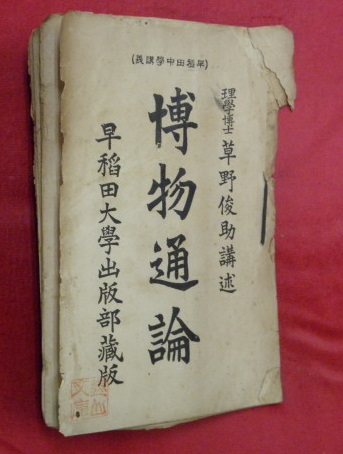 (早稻田中學講義)
理學博士 草野俊助講述
博物通論
早稻田大學出版部藏版